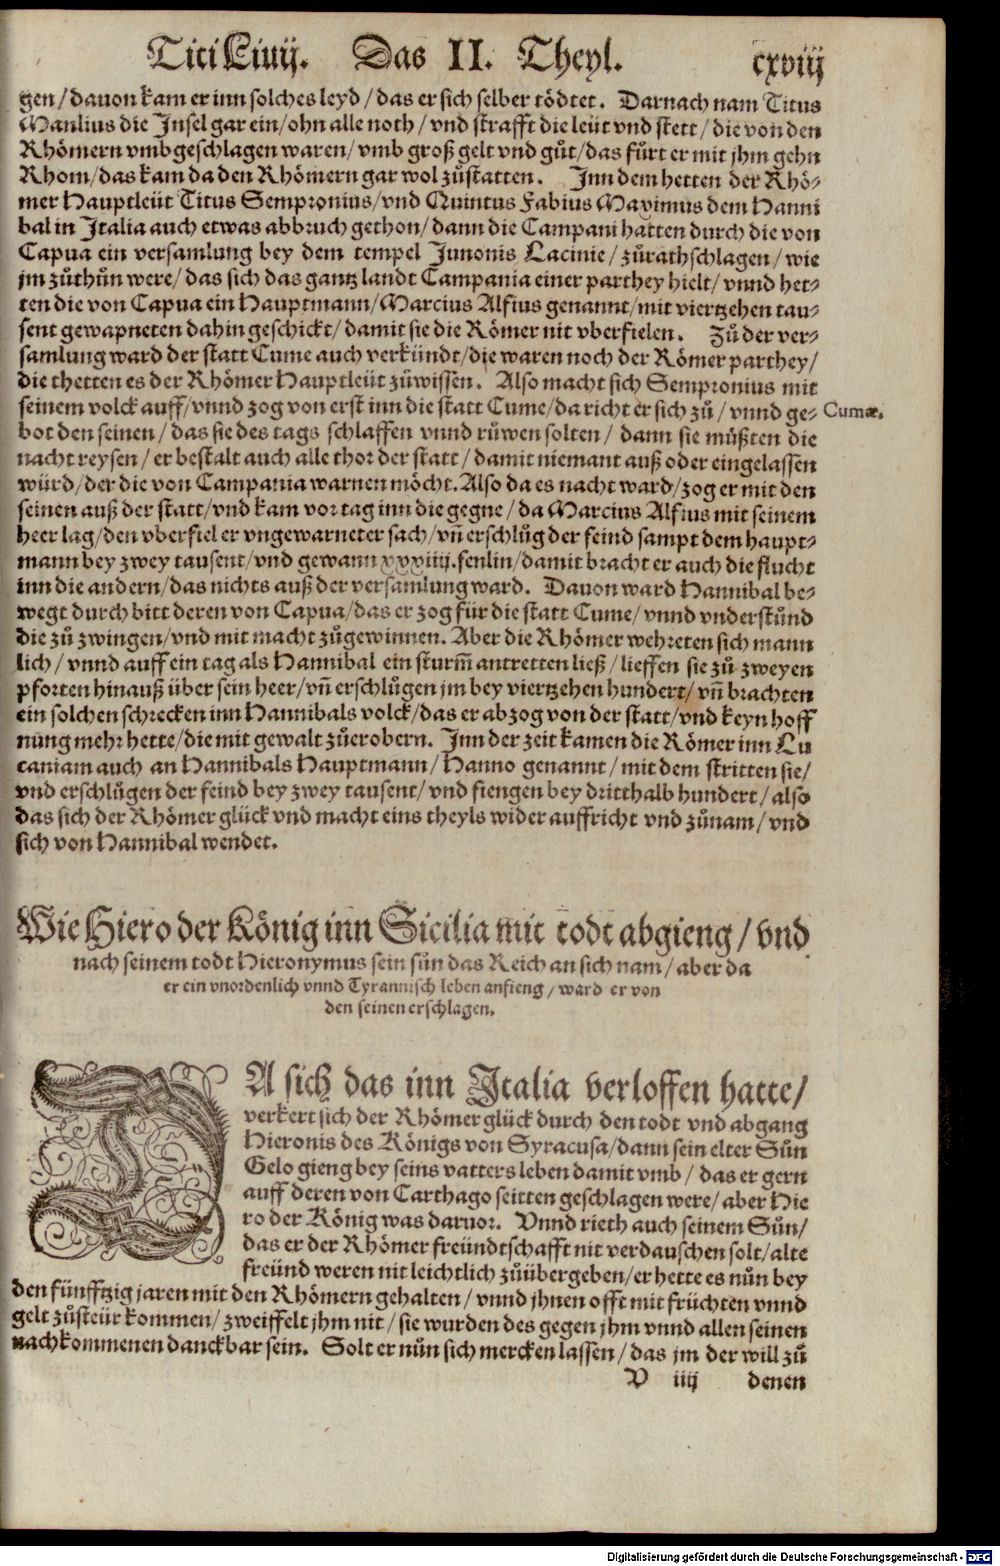 Titi Liuij. Das II. Theyl. cxviij
gen/dauon kam er inn solches leyd/das er sich selber tödtet. Darnach nam Titus
Manlius die Jnsel gar ein/ohn alle noth/vnd strafft die leüt vnd stett/die von den
Rhömern vmbgeschlagen waren/vmb groß gelt vnd gůt/das fůrt er mit jhm gehn
Rhom/das kam da den Rhömern gar wol zůstatten. Jnn dem hetten der Rhö-
mer Hauptleüt Titus Sempronius/vnd Quintus Fabius Maximus dem Hanni
bal in Jtalia auch etwas abbruch gethon/dann die Campani hatten durch die von
Capua ein versamlung bey dem tempel Junonis Lacinie/zůrathschlagen/wie
jm zůthůn were/das sich das gantz landt Campania einer parthey hielt/vnnd het-
ten die von Capua ein Hauptmann/Marcius Alfius genannt/mit viertzehen tau-
sent gewapneten dahin geschickt/damit sie die Römer nit vberfielen. Zů der ver-
samlung ward der statt Cume auch verkündt/die waren noch der Römer parthey/
die thetten es der Rhömer Hauptleüt zůwissen. Also macht sich Sempronius mit
seinem volck auff/vnnd zog von erst inn die statt Cume/da richt er sich zů/vnnd ge-
Cumæ.
bot den seinen/das sie des tags schlaffen vnnd růwen solten/dann sie můßten die
nacht reysen/er bestalt auch alle thor der statt/damit niemant auß oder eingelassen
würd/der die von Campania warnen möcht. Also da es nacht ward/zog er mit den
seinen auß der statt/vnd kam vor tag inn die gegne/da Marcius Alfius mit seinem
heer lag/den vberfiel er vngewarneter sach/vñ erschlůg der feind sampt dem haupt-
mann bey zwey tausent/vnd gewann xxxiiij. fenlin/damit bracht er auch die flucht
inn die andern/das nichts auß der versamlung ward. Dauon ward Hannibal be-
wegt durch bitt deren von Capua/das er zog für die statt Cume/vnnd vnderstůnd
die zů zwingen/vnd mit macht zůgewinnen. Aber die Rhömer wehreten sich mann
lich/vnnd auff ein tag als Hannibal ein sturm̃ antretten ließ/lieffen sie zů zweyen
pforten hinauß über sein heer/vñ erschlůgen jm bey viertzehen hundert/vñ brachten
ein solchen schrecken inn Hannibals volck/das er abzog von der statt/vnd keyn hoff
nung mehr hette/die mit gewalt zůerobern. Jnn der zeit kamen die Römer inn Lu
caniam auch an Hannibals Hauptmann/Hanno genannt/mit dem stritten sie/
vnd erschlůgen der feind bey zwey tausent/vnd fiengen bey dritthalb hundert/also
das sich der Rhömer glück vnd macht eins theyls wider auffricht vnd zůnam/vnd
sich von Hannibal wendet.
Wie Hiero der König inn Sicilia mit todt abgieng/vnd
nach seinem todt Hieronymus sein sůn das Reich an sich nam/aber da
er ein vnordenlich vnnd Tyrannisch leben anfieng/ward er von
den seinen erschlagen.
DA sich das inn Jtalia verloffen hatte/
verkert sich der Rhömer glück durch den todt vnd abgang
Hieronis des Königs von Syracusa/dann sein elter Sůn
Gelo gieng bey seins vatters leben damit vmb/das er gern
auff deren von Carthago seitten geschlagen were/aber Hie
ro der König was daruor. Vnnd rieth auch seinem Sůn/
das er der Rhömer freündtschafft nit verdauschen solt/alte
freünd weren nit leichtlich zůübergeben/er hette es nůn bey
den fünfftzig jaren mit den Rhömern gehalten/vnnd jhnen offt mit früchten vnnd
gelt zůsteür kommen/zweiffelt jhm nit/sie wurden des gegen jhm vnnd allen seinen
nachkommenen danckbar sein. Solt er nůn sich mercken lassen/das jm der will zů
V iiij denen
Digitalisierung gefördert durch die Deutsche Forschungsgemeinschaft - DFG